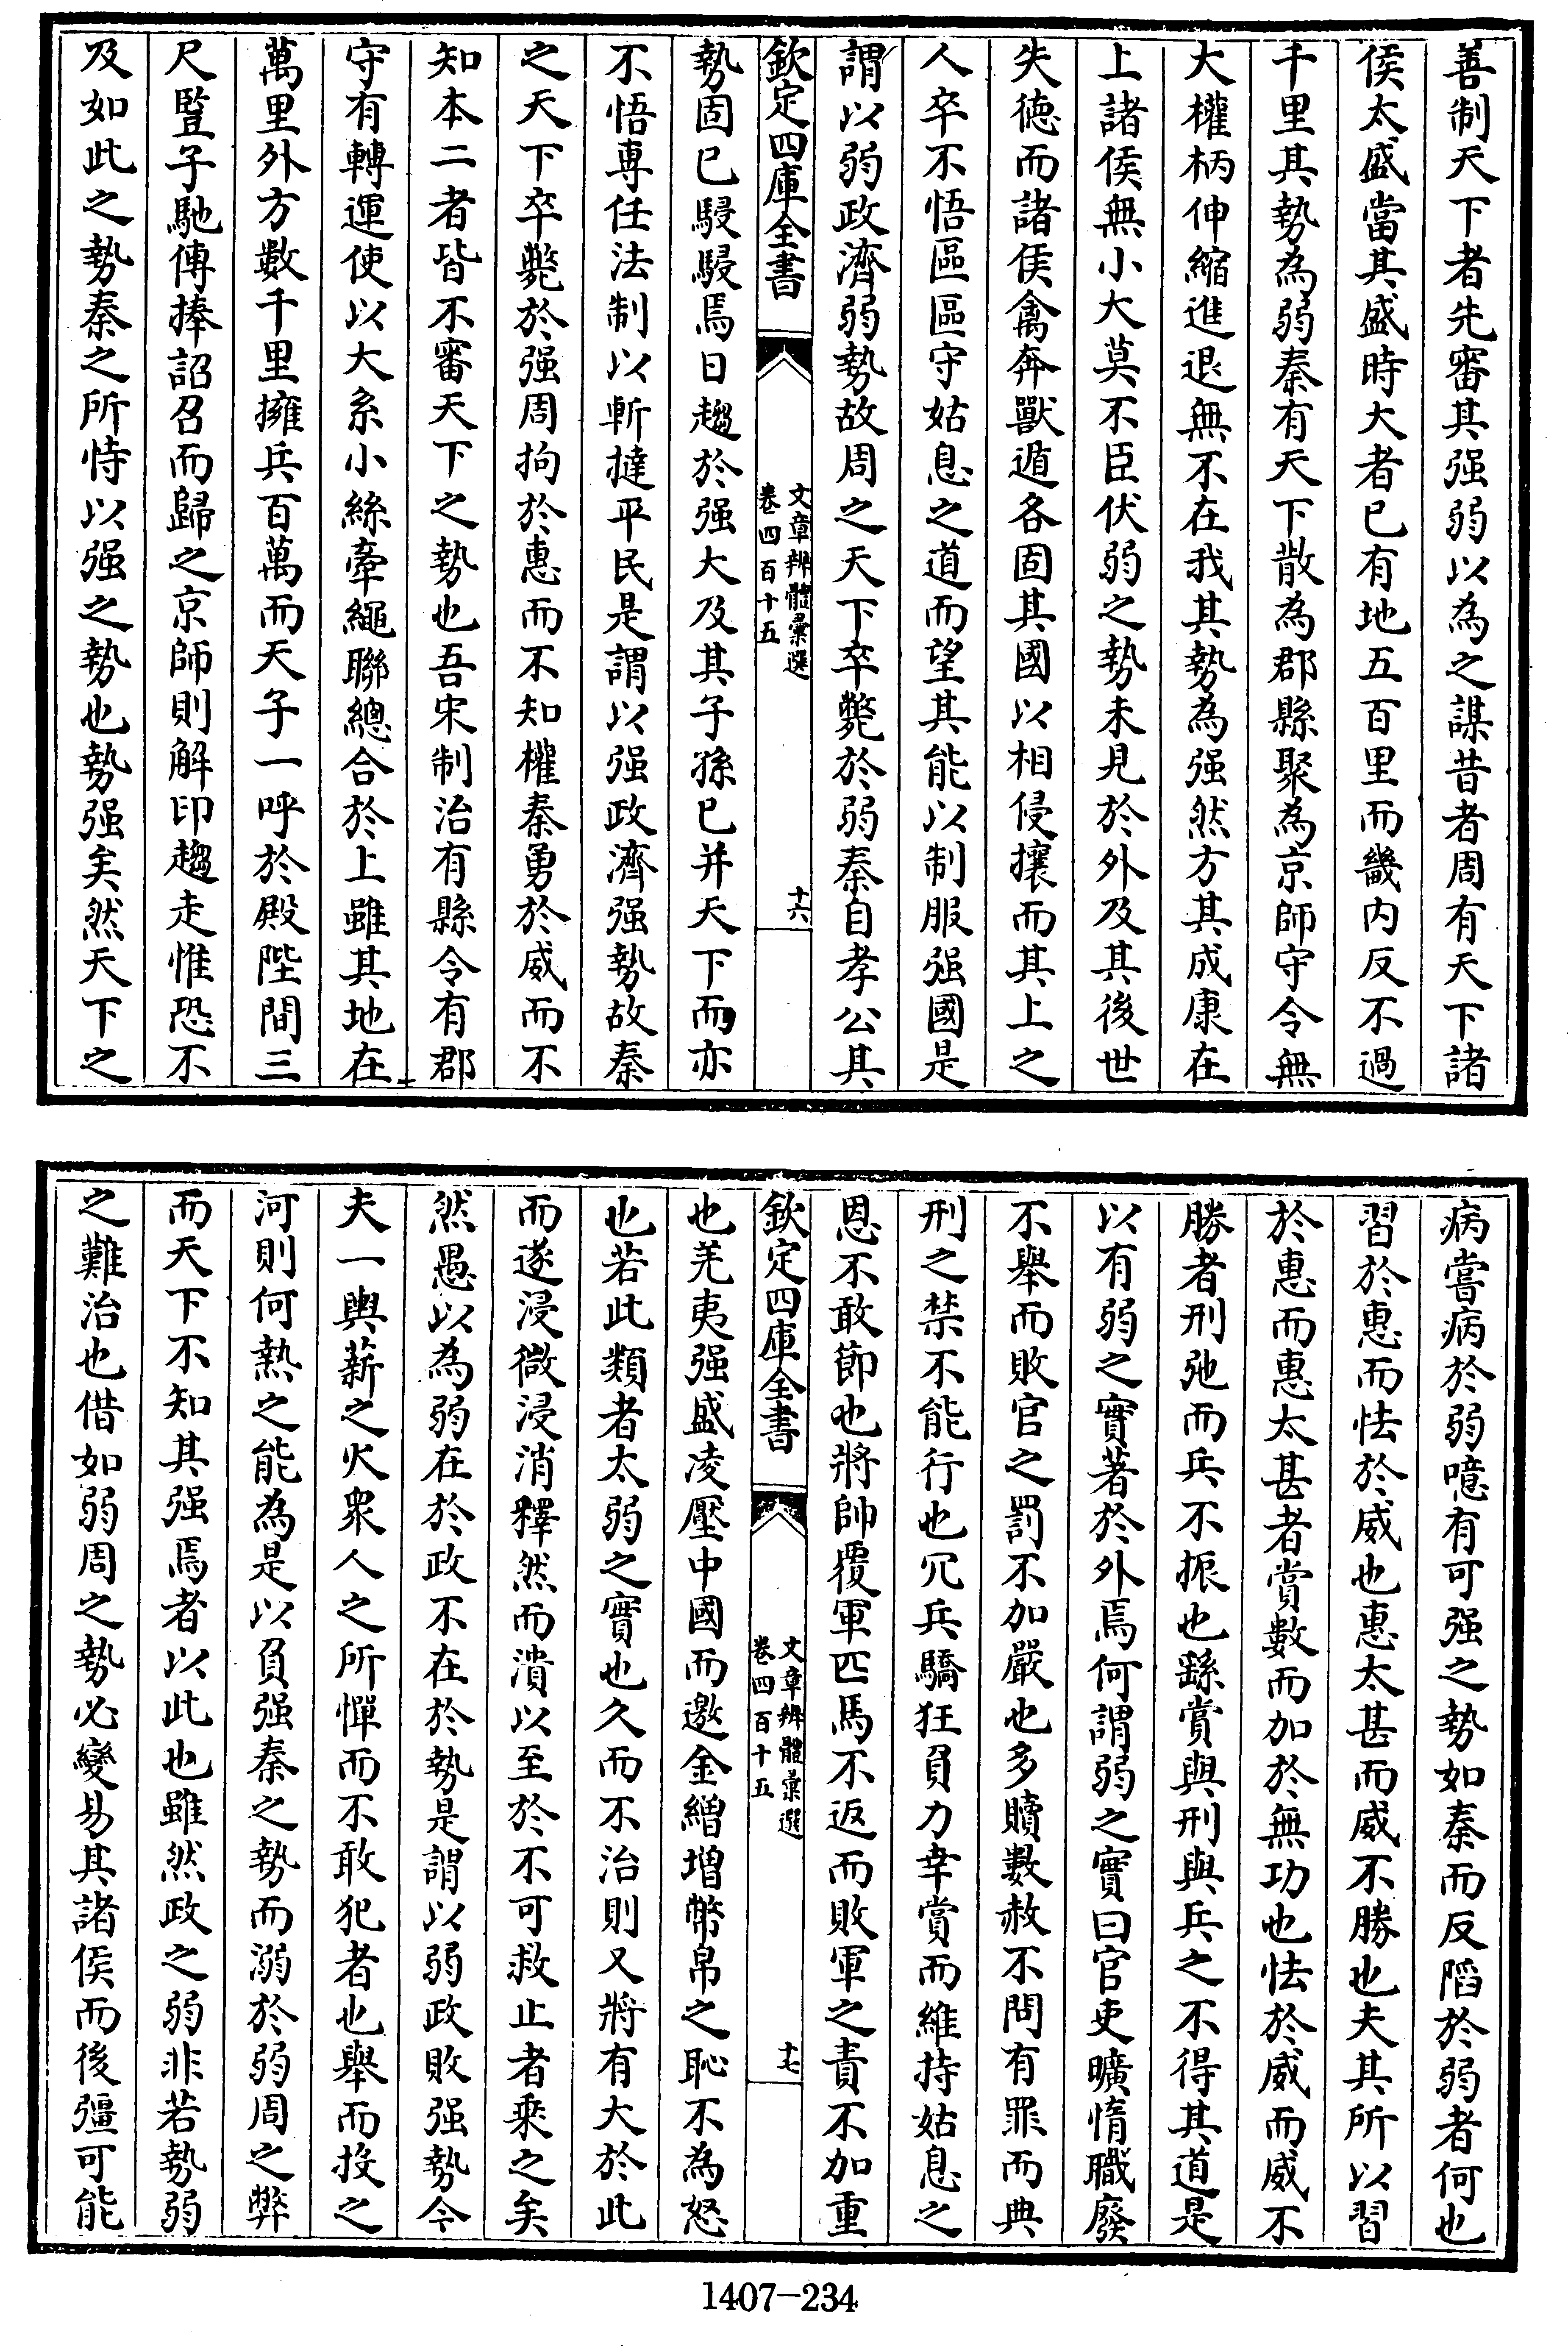 善制天下者先審其强弱以為之謀昔者周有天下諸
侯太盛當其盛時大者已有地五百里而畿内反不過
千里其勢為弱秦有天下散為郡縣聚為京師守令無
大權柄伸縮進退無不在我其勢為强然方其成康在
上諸侯無小大莫不臣伏弱之勢未見於外及其後世
失徳而諸侯禽奔獸遁各固其國以相侵攘而其上之
人卒不悟區區守姑息之道而望其能以制服强國是
謂以弱政濟弱勢故周之天下卒斃於弱秦自孝公其
欽定四庫全書
文章辨體彙選
卷四百十五
十六
勢固已駸駸焉日趨於强大及其子孫已并天下而亦
不悟專任法制以斬撻平民是謂以强政濟强勢故秦
之天下卒斃於强周拘於惠而不知權秦勇於威而不
知本二者皆不審天下之勢也吾宋制治有縣令有郡
守有轉運使以大系小絲牽繩聯總合於上雖其地在
萬里外方數千里擁兵百萬而天子一呼於殿陛間三
尺豎子馳傳捧詔召而歸之京師則解印趨走惟恐不
及如此之勢秦之所恃以强之勢也勢强矣然天下之
病嘗病於弱噫有可强之勢如秦而反陷於弱者何也
習於惠而怯於威也惠太甚而威不勝也夫其所以習
於惠而惠太甚者賞數而加於無功也怯於威而威不
勝者刑弛而兵不振也繇賞與刑與兵之不得其道是
以有弱之實著於外焉何謂弱之實曰官吏曠惰職廢
不舉而敗官之罰不加嚴也多贖數赦不問有罪而典
刑之禁不能行也冗兵驕狂負力幸賞而維持姑息之
恩不敢節也將帥覆軍匹馬不返而敗軍之責不加重
欽定四庫全書
文章辨體彙選
卷四百十五
十七
也羌夷强盛凌壓中國而邀金繒增幣帛之恥不為怒
也若此類者太弱之實也久而不治則又將有大於此
而遂浸微浸消釋然而潰以至於不可救止者乘之矣
然愚以為弱在於政不在於勢是謂以弱政敗强勢今
夫一輿薪之火衆人之所憚而不敢犯者也舉而投之
河則何熱之能為是以負强秦之勢而溺於弱周之弊
而天下不知其强焉者以此也雖然政之弱非若勢弱
之難治也借如弱周之勢必變易其諸侯而後彊可能
1407-234